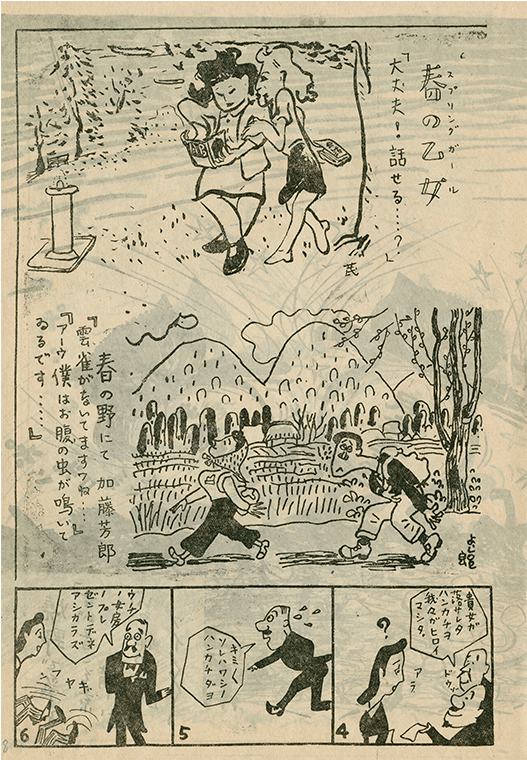 春の乙女
スプリングガール
「大丈夫！話せる……？」
芘
春の野にて 加藤芳郎
『雲雀がないてますワね……』
『アーウ僕はお腹の虫が鳴いて
ゐるです……』
よし郎
貴女が
落サレタ
ハンカチヲ
我々がヒロイ
マシタ。
ドウゾ
アラ
?
4
キミ〱
ソレハワシノ
ハンカチダヨ
5
ウチノ
女房
ノプレ
ゼントデネ
アシカラズ
ギャフン
6
8